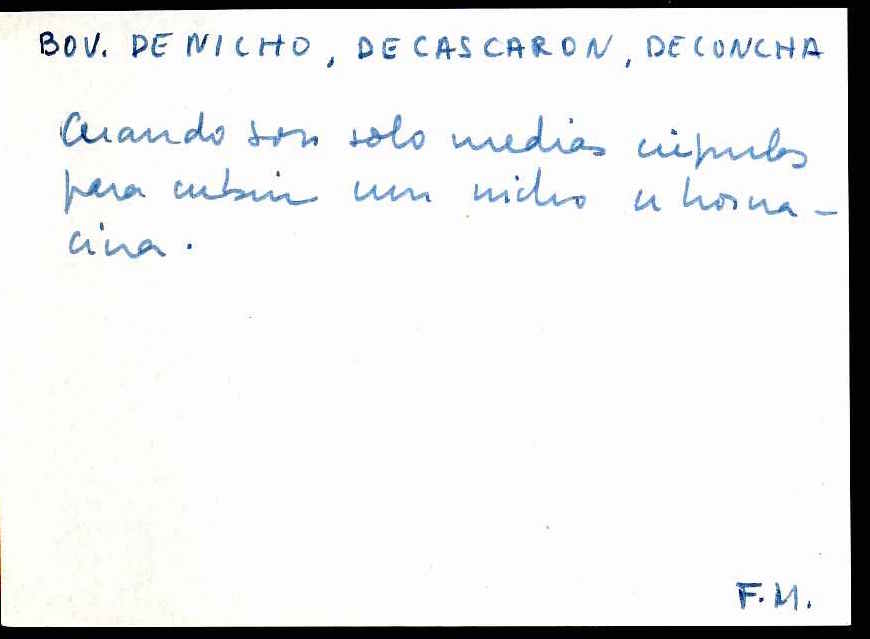 BOV. DE NICHO, DE CASCARON, DE CONCHA
Cuando son solo medias cúpulas
para cubrir un nicho u horna-
cina.
F.M.